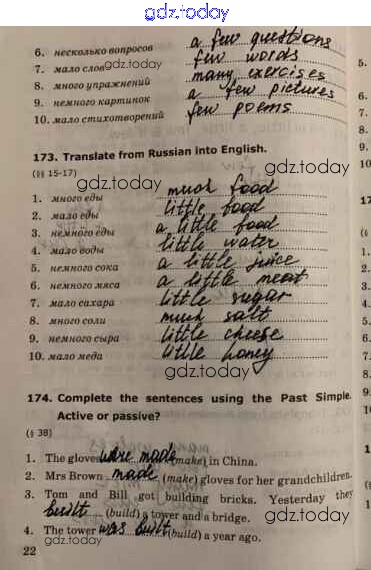 gdz.today
6. несколько вопросов a few questions
7. мало слов few words
gdz.today
8. много упражнений many exercises
9. немного картинок a few pictures
10. мало стихотворений few poems
gdz.today
173. Translate from Russian into English.
(§§ 15-17)
gdz.today
1. много еды much food
2. мало еды little food
3. немного еды a little food
gdz.today
4. мало воды little water
5. немного сока a little juice
gdz.today
6. немного мяса a little meat
7. мало сахара little sugar
8. много соли much salt
9. немного сыра little cheese
10. мало меда little honey
gdz.today
174. Complete the sentences using the Past Simple.
Active or passive?
(§ 38)
1. The gloves were made (make) in China.
gdz.today
2. Mrs Brown made (make) gloves for her grandchildren.
3. Tom and Bill got building bricks. Yesterday they
built (build) a tower and a bridge.
gdz.today
4. The tower was built (build) a year ago.
22
gdz.today